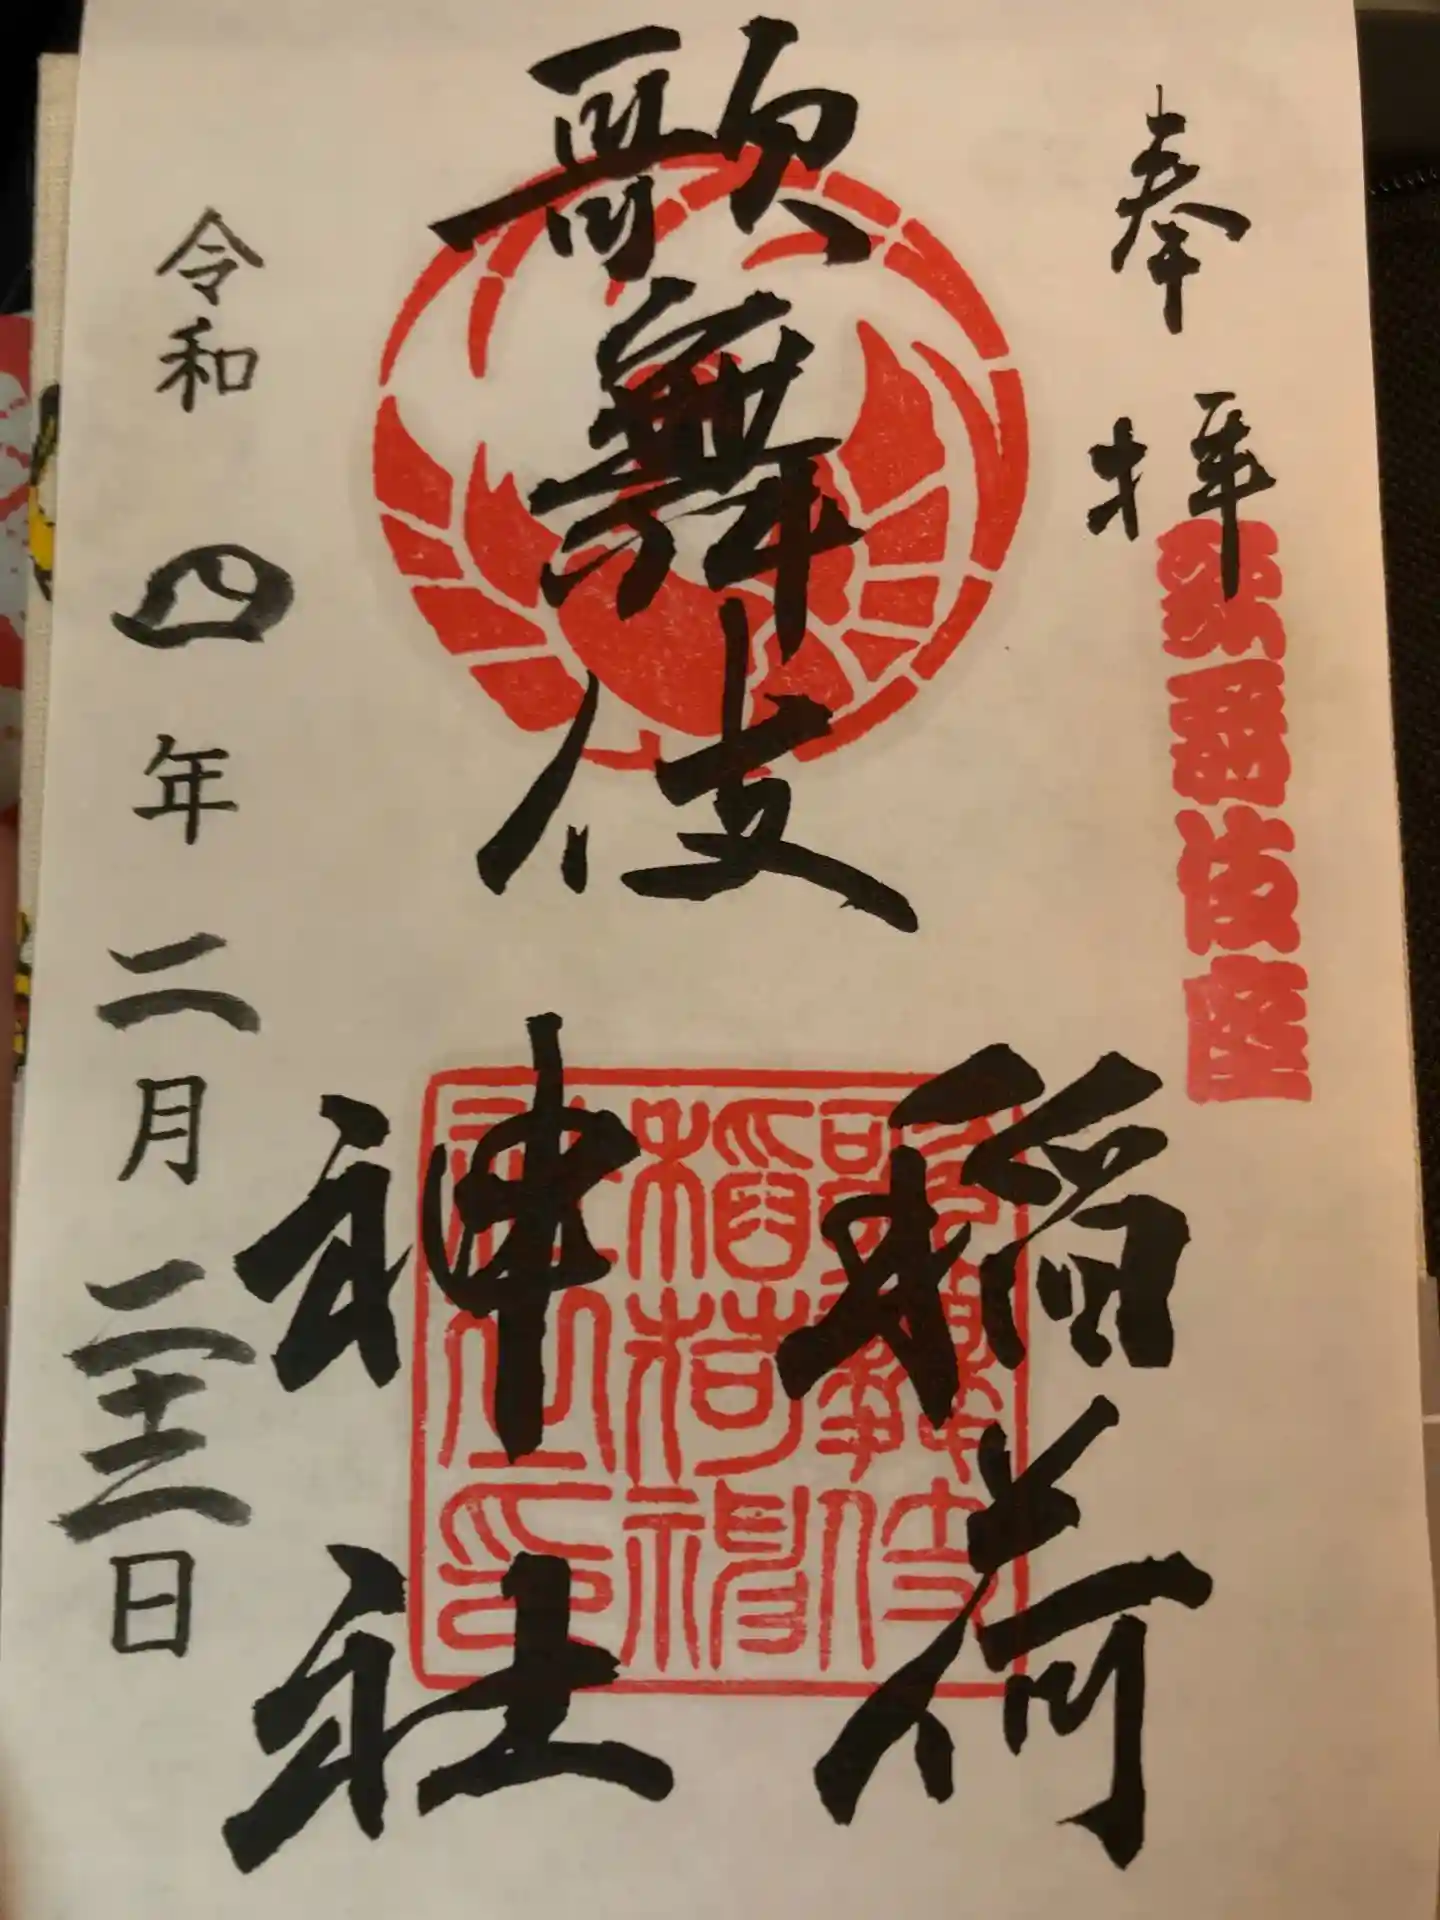 奉拝
歌舞伎座
歌舞伎
稲荷
神社
歌舞伎
稲荷神
社之印
令和四年二月二十三日